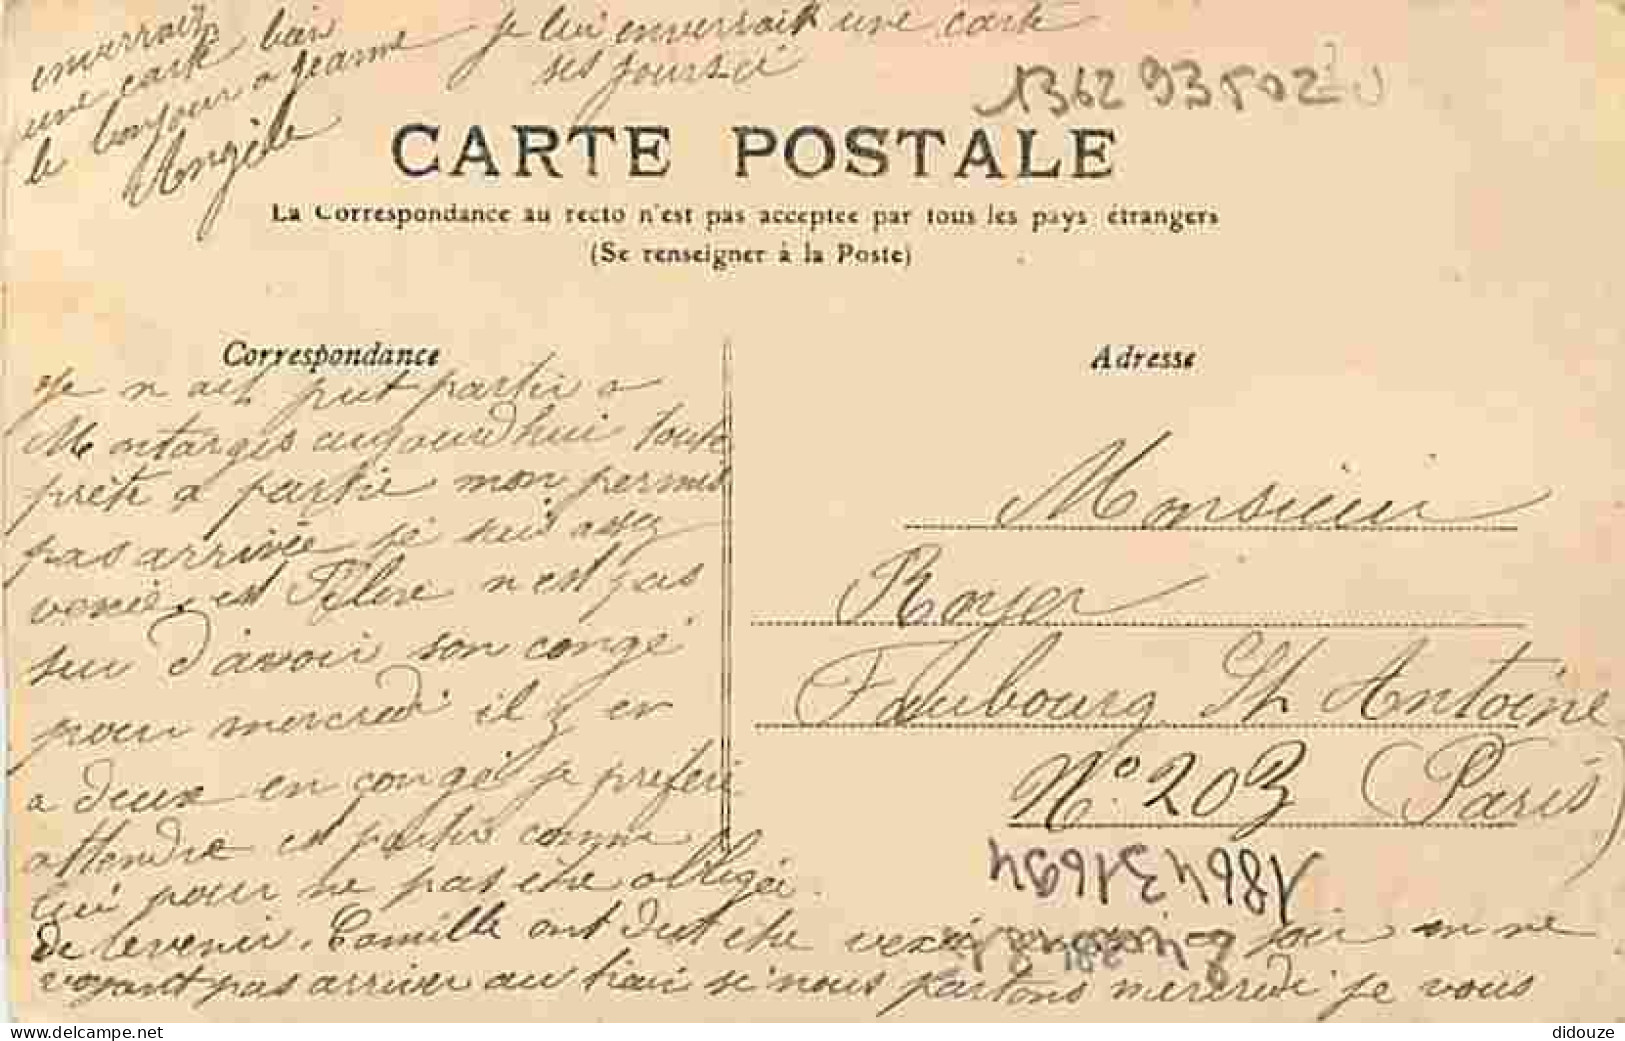 je lui enverrait une carte
ses jours ci
enverrais
une carte bien
le bonjour a Jeanne
Angèle
1362 93502
CARTE POSTALE
La Correspondance au recto n'est pas acceptée par tous les pays étrangers
(Se renseigner à la Poste)
Correspondance
Adresse
Je n ait put partir a
Montargis aujourdhui toute
prete a partir mon permis
pas arrivée je suis assez
vexée est n est pas
sur d'avoir son congé
pour mercredi il y en
a deux en congé je prefere
attendre et partir comme
lui pour ne pas etre obligée
de revenir. Camille ont dut etre vexé soir en ne
voyant pas arriver au train si nous partons mercredi je vous
Monsieur
Royer
Faubourg St Antoine
N° 203 (Paris)
186431694
didouze